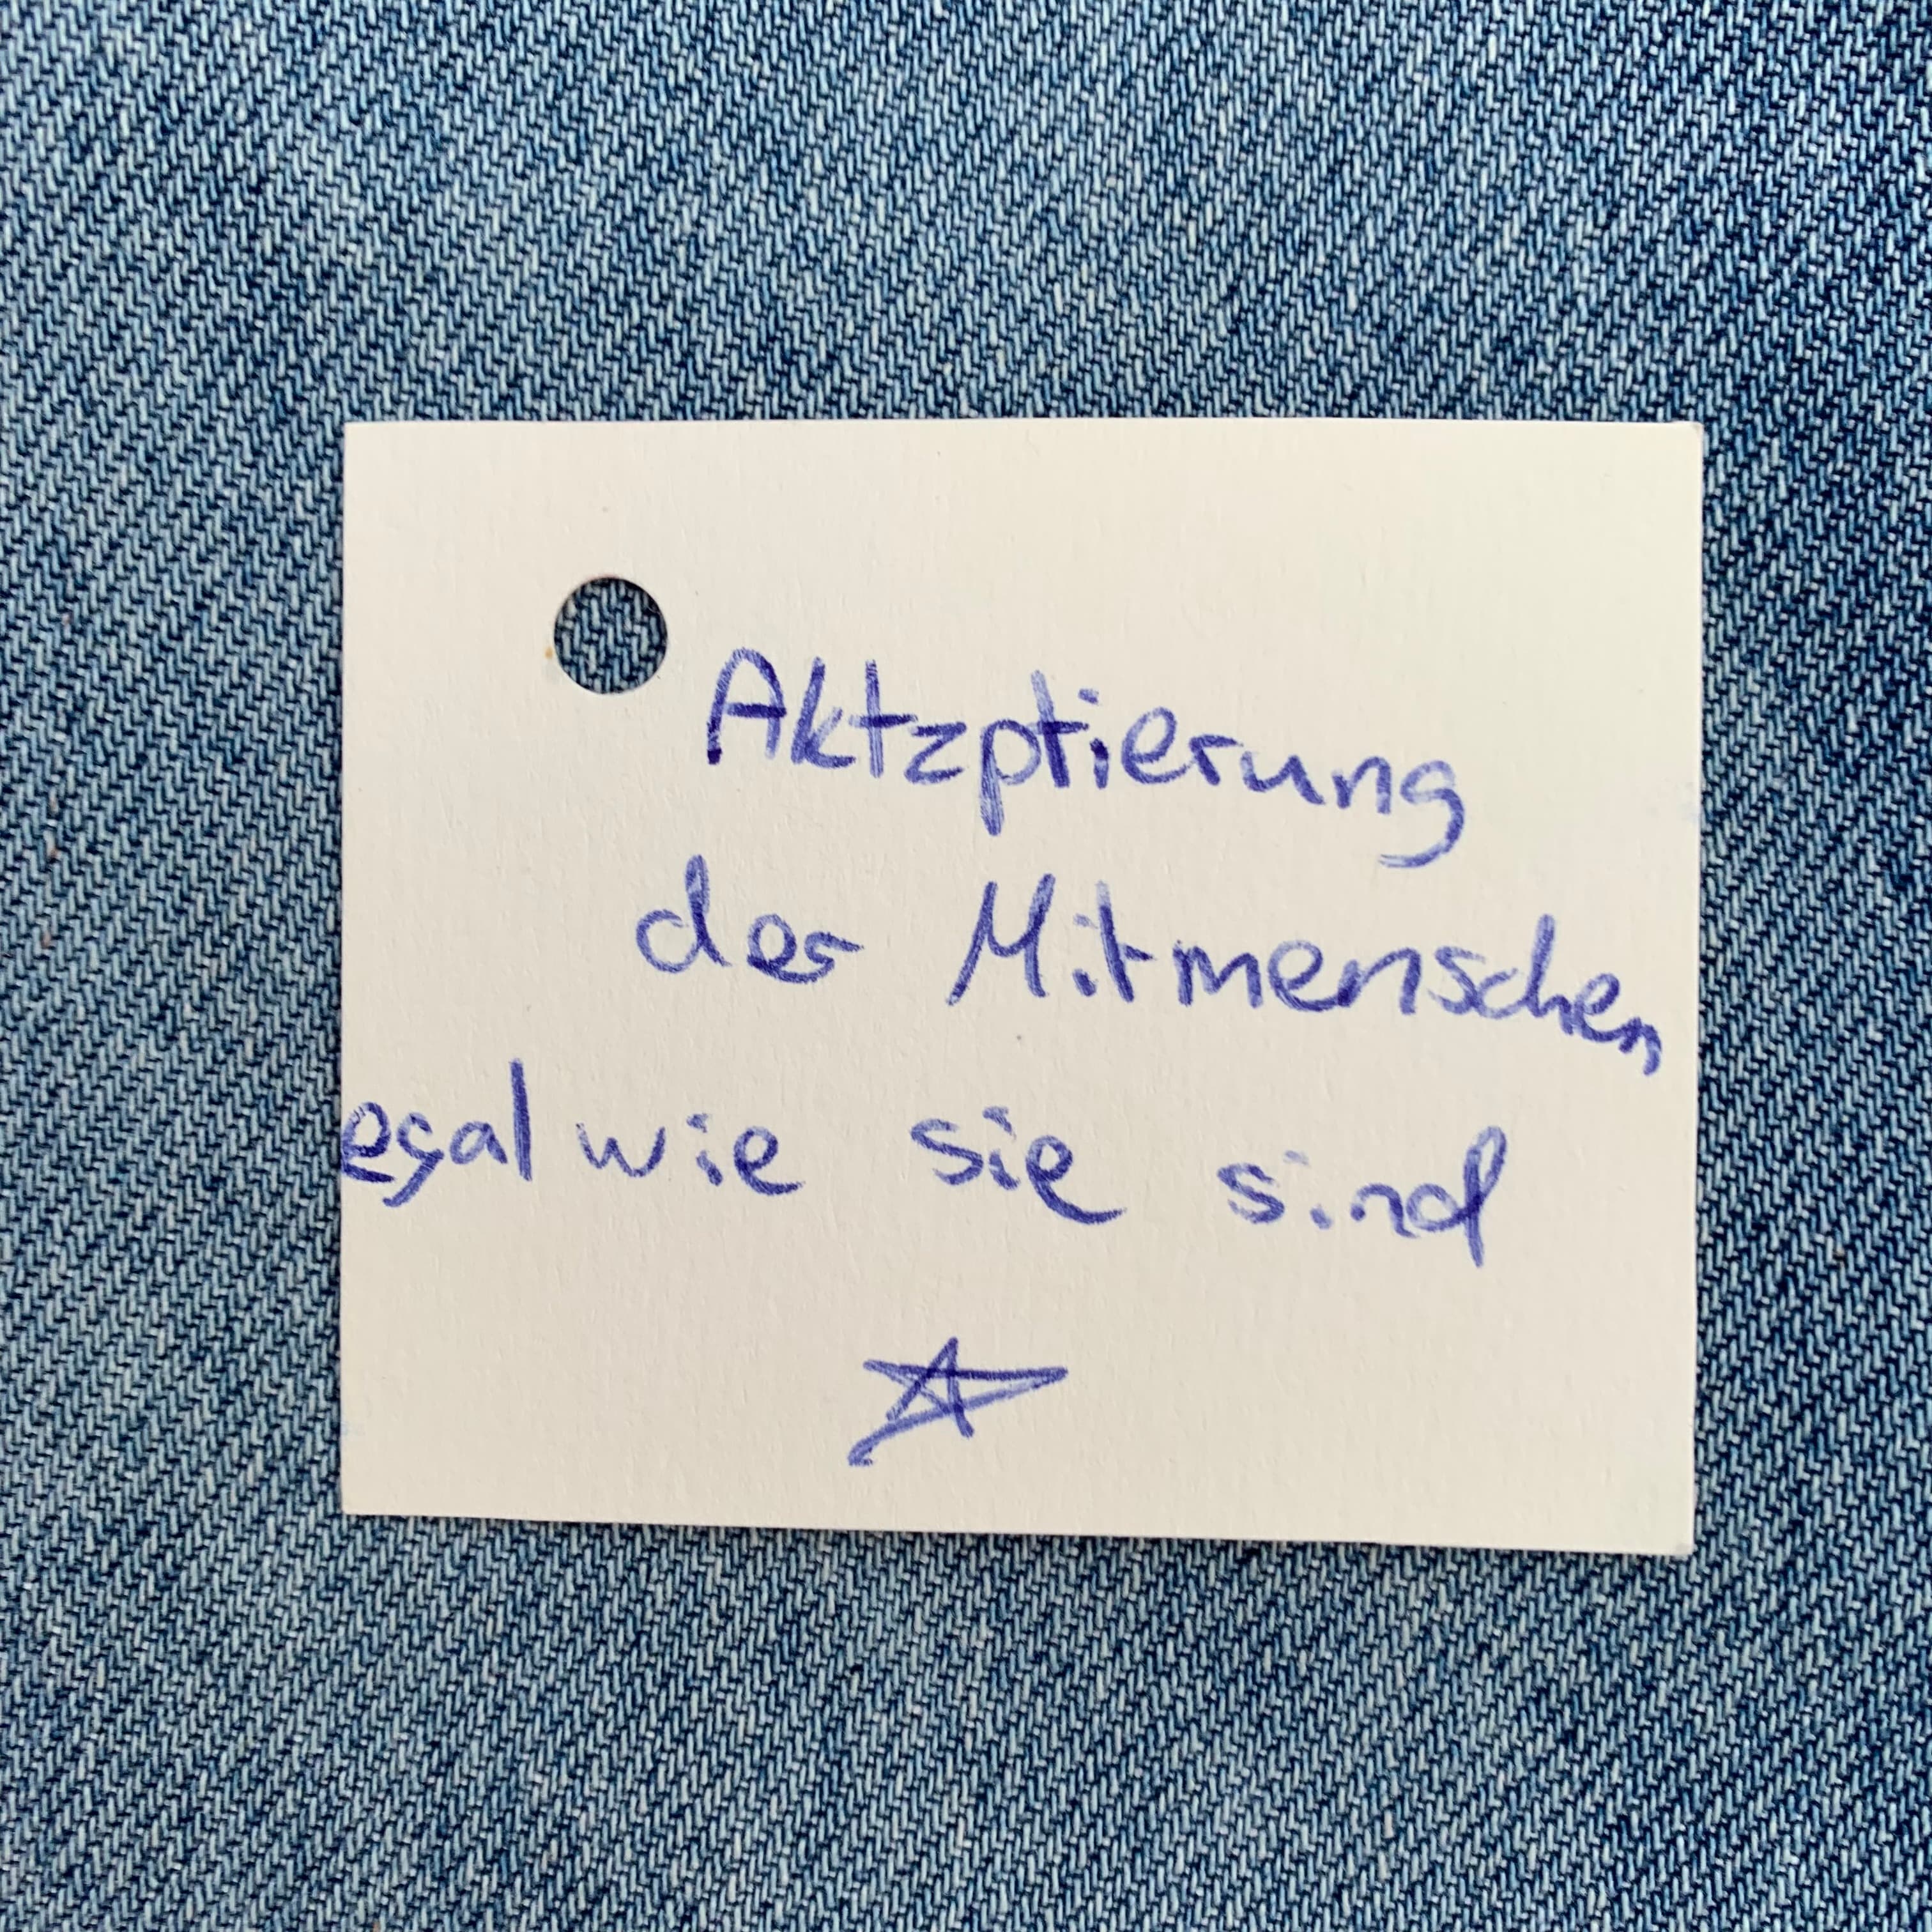 Aktzptierung
der Mitmenschen
egal wie sie sind